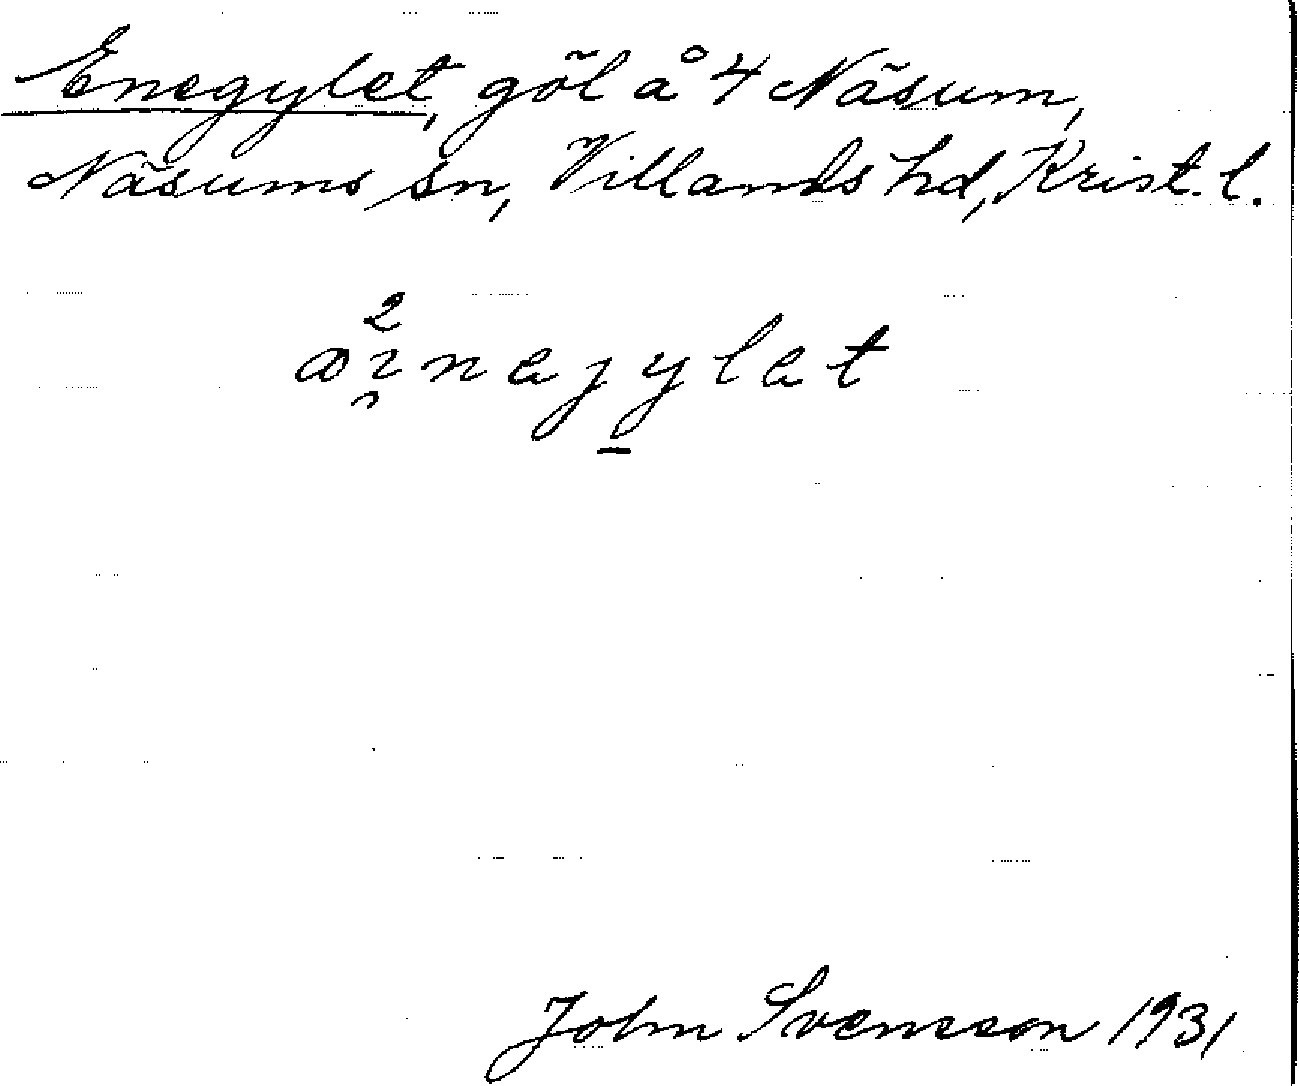 Enegylet, göl å 4 Näsum,
Näsums sn, Villands hd, Krist. l.
2
æɪ̯nejylet
John Svensson 1931